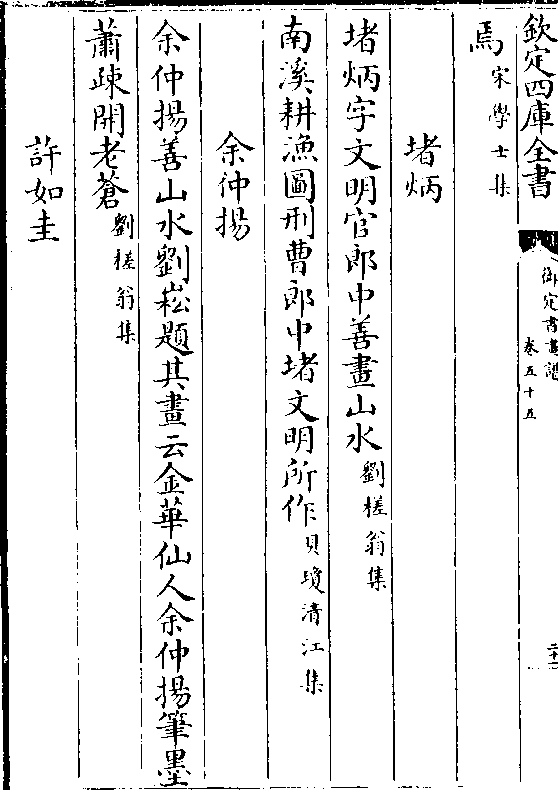 欽定四庫全書
御定書畫譜
卷五十五
焉宋學士集
堵炳
堵炳字文明官郎中善畫山水劉槎翁集
南溪耕漁圖刑曹郎中堵文明所作貝瓊清江集
余仲揚
余仲揚善山水劉崧題其畫云金華仙人余仲揚筆墨
蕭疎開老蒼劉槎翁集
許如圭